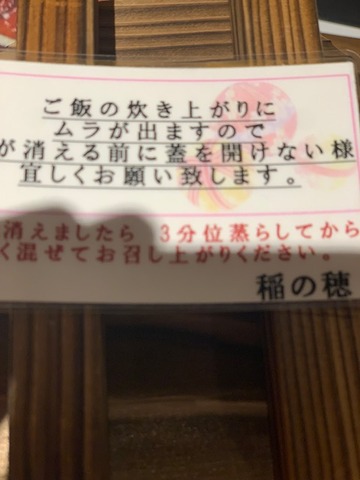 ご飯の炊き上がりに
ムラが出ますので
が消える前に蓋を開けない様
宜しくお願い致します。
消えましたら 3分位蒸らしてから
く混ぜてお召し上がりください。
稲の穂